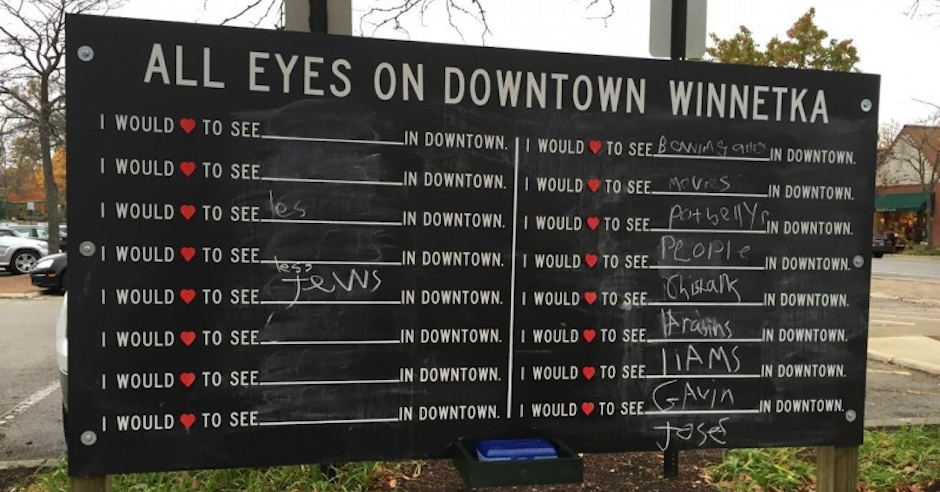 ALL EYES ON DOWNTOWN WINNETKA
I WOULD ♥ TO SEE IN DOWNTOWN.
I WOULD ♥ TO SEE IN DOWNTOWN.
I WOULD ♥ TO SEE les IN DOWNTOWN.
I WOULD ♥ TO SEE IN DOWNTOWN.
less
I WOULD ♥ TO SEE Jews IN DOWNTOWN.
I WOULD ♥ TO SEE IN DOWNTOWN.
I WOULD ♥ TO SEE IN DOWNTOWN.
I WOULD ♥ TO SEE IN DOWNTOWN.
I WOULD ♥ TO SEE IN DOWNTOWN.
I WOULD ♥ TO SEE movies IN DOWNTOWN.
I WOULD ♥ TO SEE PotbellYs IN DOWNTOWN.
I WOULD ♥ TO SEE PEOPlE IN DOWNTOWN.
I WOULD ♥ TO SEE IN DOWNTOWN.
I WOULD ♥ TO SEE IN DOWNTOWN.
I WOULD ♥ TO SEE liAMS IN DOWNTOWN.
I WOULD ♥ TO SEE GAvin IN DOWNTOWN.